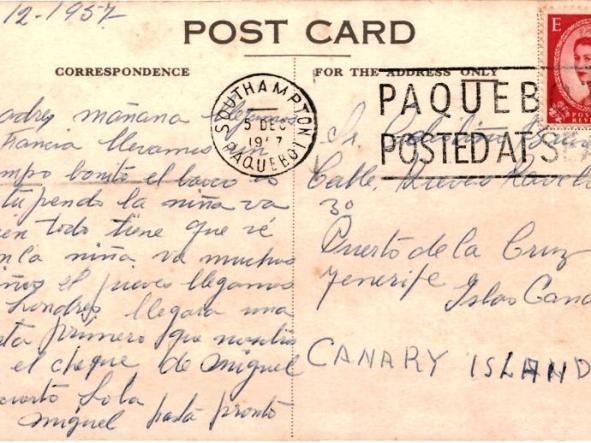 12-1957
POST CARD
CORRESPONDENCE
FOR THE ADDRESS ONLY
SOUTHAMPTON
5 DEC
19 7
PAQUEBOT
PAQUEB
POSTED AT SEA
E
mañana llegamos
Francia llevamos un
bonito el barco
la niña va
en todo tiene que
la niña va muchos
el jueves llegamos
Londres llegara una
primero que nosotros
el cheque de Miguel
Lola
Miguel hasta pronto
Sr.
Calle, Nuevo
3º
Puerto de la Cruz
Tenerife Islas Cana
CANARY ISLAND